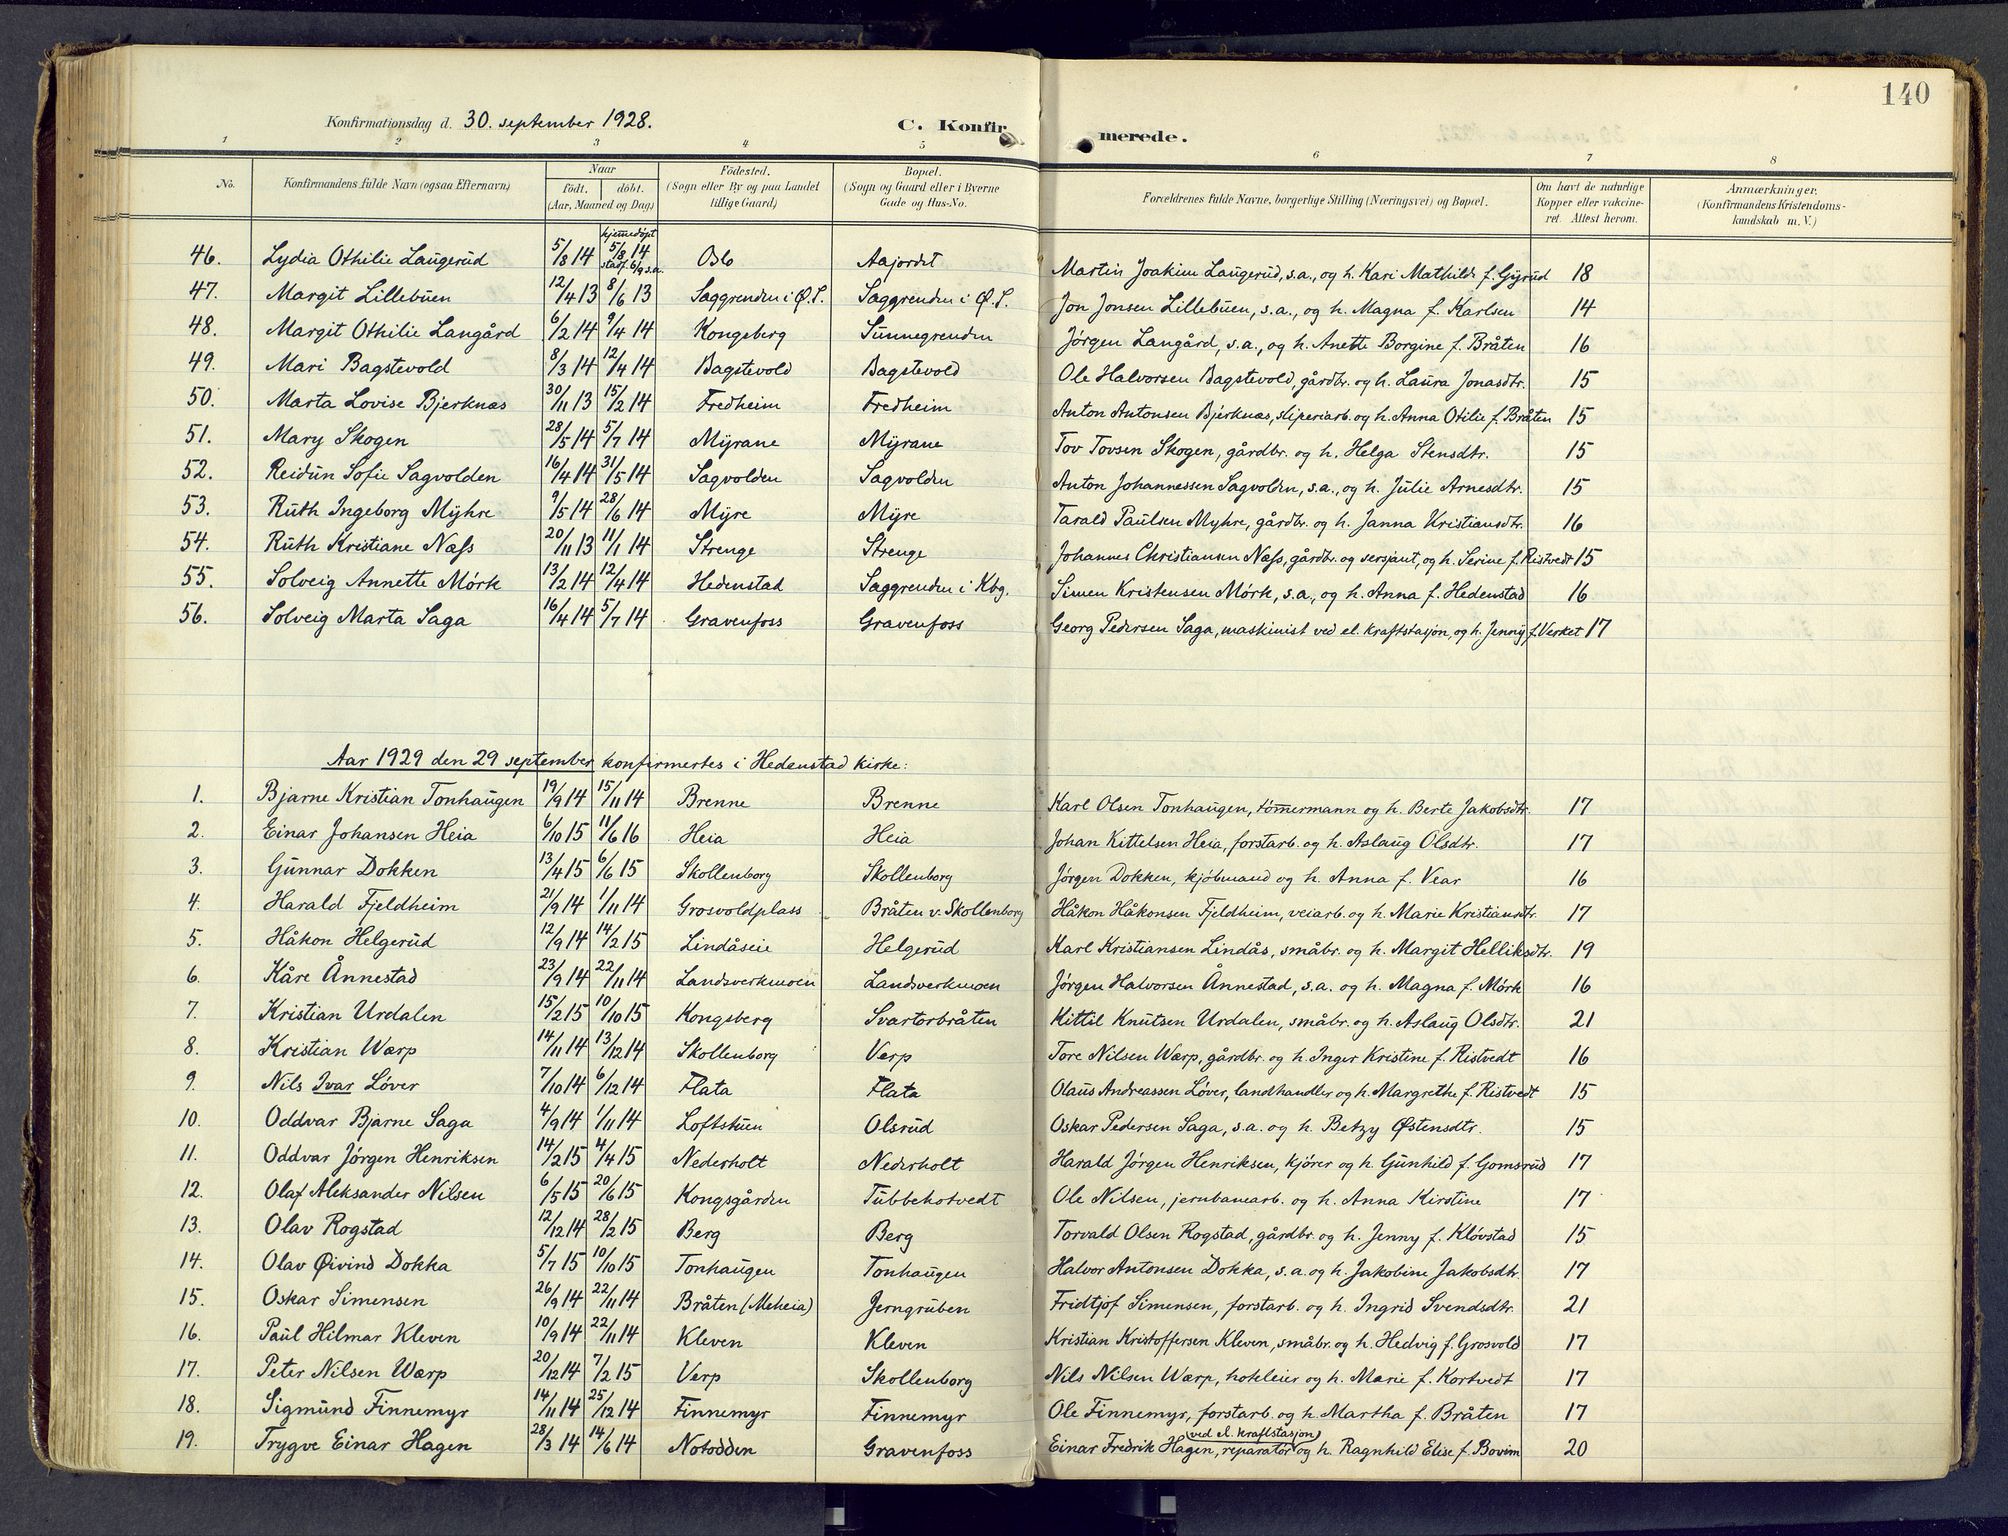 140
Konfirmationsdag d. 30. september 1928. C. Konfirmerede.
1 2 3 4 5 6 7 8
No. Konfirmandens fulde Navn (ogsaa Efternavn) Naar födt. döbt. (Aar, Maaned og Dag) Födested. (Sogn eller By og paa Landet tillige Gaard) Bopæl. (Sogn og Gaard eller i Byerne Gade og Hus-No. Forældrenes fulde Navne, borgerlige Stilling (Næringsvei) og Bopæl. Om havt de naturlige Kopper eller vakcineret. Attest herom. Anmærkninger. (Konfirmandens Kristendomskundskab m. V.)
46. Lydia Othilie Laugerud 5/8 14 hjemmedöpt 5/8 14 stadf. 6/9 s.a. Oslo Aajordet Martin Joakim Laugerud, s.a., og h. Kari Mathilde f. Gyrud 18
47. Margit Lillebuen 12/4 13 8/6 13 Saggrenden i Ø.S. Saggrenden i Ø.S. Jon Jonsen Lillebuen, s.a., og h. Magna f. Karlsen 14
48. Margit Othilie Langård 6/2 14 9/4 14 Kongsberg Sunnegrenden Jørgen Langård, s.a., og h. Anette Borgine f. Bråten 16
49. Mari Bagstevold 8/3 14 12/4 14 Bagstevold Bagstevold Ole Halvorsen Bagstevold, gårdbr. og h. Laura Jonasdtr. 15
50. Marta Lovise Bjerknæs 30/11 13 15/2 14 Fredheim Fredheim Anton Antonsen Bjerknæs, sliperiarb. og h. Anna Otilie f. Bråten 15
51. Mary Skogen 28/5 14 5/7 14 Myrane Myrane Tov Tovsen Skogen, gårdbr. og h. Helga Stensdtr. 15
52. Reidun Sofie Sagvolden 16/4 14 31/5 14 Sagvolden Sagvolden Anton Johannessen Sagvolden, s.a., og h. Julie Arnesdtr. 15
53. Ruth Ingeborg Myhre 9/5 14 28/6 14 Myre Myre Tarald Paulsen Myhre, gårdbr. og h. Janna Kristiansdtr. 16
54. Ruth Kristiane Næss 20/11 13 11/1 14 Strenge Strenge Johannes Christiansen Næss, gårdbr. og sersjant, og h. Serine f. Ristvedt 15
55. Solveig Annette Mörk 13/2 14 12/4 14 Hedenstad Saggrenden i Kbg. Simen Kristensen Mörk, s.a., og h. Anna f. Hedenstad 16
56. Solveig Marta Saga 16/4 14 5/7 14 Gravenfoss Gravenfoss Georg Pedersen Saga, maskinist ved el. kraftstasjon, og h. Jenny f. Verket 17
Aar 1929 den 29 september konfirmertes i Hedenstad kirke:
1. Bjarne Kristian Tonhaugen 19/9 14 15/11 14 Brenne Brenne Karl Olsen Tonhaugen, tömmermann og h. Berte Jakobsdtr. 17
2. Einar Johansen Heia 6/10 15 11/6 16 Heia Heia Johan Kittelsen Heia, forstarb. og h. Aslaug Olsdtr. 17
3. Gunnar Dokken 13/4 15 6/6 15 Skollenborg Skollenborg Jørgen Dokken, kjöbmand og h. Anna f. Vear 16
4. Harald Fjeldheim 21/9 14 1/11 14 Grosvoldplass Bråten v. Skollenborg Håkon Håkonsen Fjeldheim, veiarb. og h. Marie Kristiansdtr. 17
5. Håkon Helgerud 12/9 14 14/2 15 Lindåseie Helgerud Karl Kristiansen Lindås, småbr. og h. Margit Helliksdtr. 19
6. Kåre Ånnestad 23/9 14 22/11 14 Landsverkmoen Landsverkmoen Jørgen Halvorsen Ånnestad, s.a. og h. Magna f. Mörk 16
7. Kristian Urdalen 15/2 15 10/10 15 Kongsberg Svartorbråten Kittil Knutsen Urdalen, småbr. og h. Aslaug Olsdtr. 21
8. Kristian Wærp 14/11 14 13/12 14 Skollenborg Verp Tore Nilsen Wærp, gårdbr. og h. Inger Kristine f. Ristvedt 16
9. Nils Ivar Löver 7/10 14 6/12 14 Flata Flata Olaus Andreassen Löver, landhandler og h. Margrethe f. Ristvedt 15
10. Oddvar Bjarne Saga 4/9 14 1/11 14 Loftshuen Olsrud Oskar Pedersen Saga, s.a. og h. Betzy Østensdtr. 15
11. Oddvar Jørgen Henriksen 14/2 15 4/4 15 Nederholt Nederholt Harald Jørgen Henriksen, kjörer og h. Gunhild f. Gomsrud 17
12. Olaf Aleksander Nilsen 6/5 15 20/6 15 Kongsgården Tubbehotvedt Ole Nilsen, jernbanearb. og h. Anna Kirstine 17
13. Olav Rogstad 12/12 14 28/2 15 Berg Berg Torvald Olsen Rogstad, gårdbr. og h. Jenny f. Klövstad 15
14. Olav Øivind Dokka 5/7 15 10/10 15 Tonhaugen Tonhaugen Halvor Antonsen Dokka, s.a. og h. Jakobine Jakobsdtr. 17
15. Oskar Simensen 26/9 14 22/11 14 Bråten (Meheia) Jerngruben Fridtjof Simensen, forstarb. og h. Ingrid Svendsdtr. 21
16. Paul Hilmar Kleven 10/9 14 22/11 14 Kleven Kleven Kristian Kristoffersen Kleven, småbr. og h. Hedvig f. Grosvold 17
17. Peter Nilsen Wærp 20/12 14 7/2 15 Verp Skollenborg Nils Nilsen Wærp, hoteleier og h. Marie f. Kortvedt 17
18. Sigmund Finnemyr 14/11 14 25/12 14 Finnemyr Finnemyr Ole Finnemyr, forstarb. og h. Martha f. Bråten 17
19. Trygve Einar Hagen 28/3 14 14/6 14 Notodden Gravenfoss Einar Fredrik Hagen, reparatör (ved el. kraftstasjon) og h. Ragnhild Elise f. Bovim 20